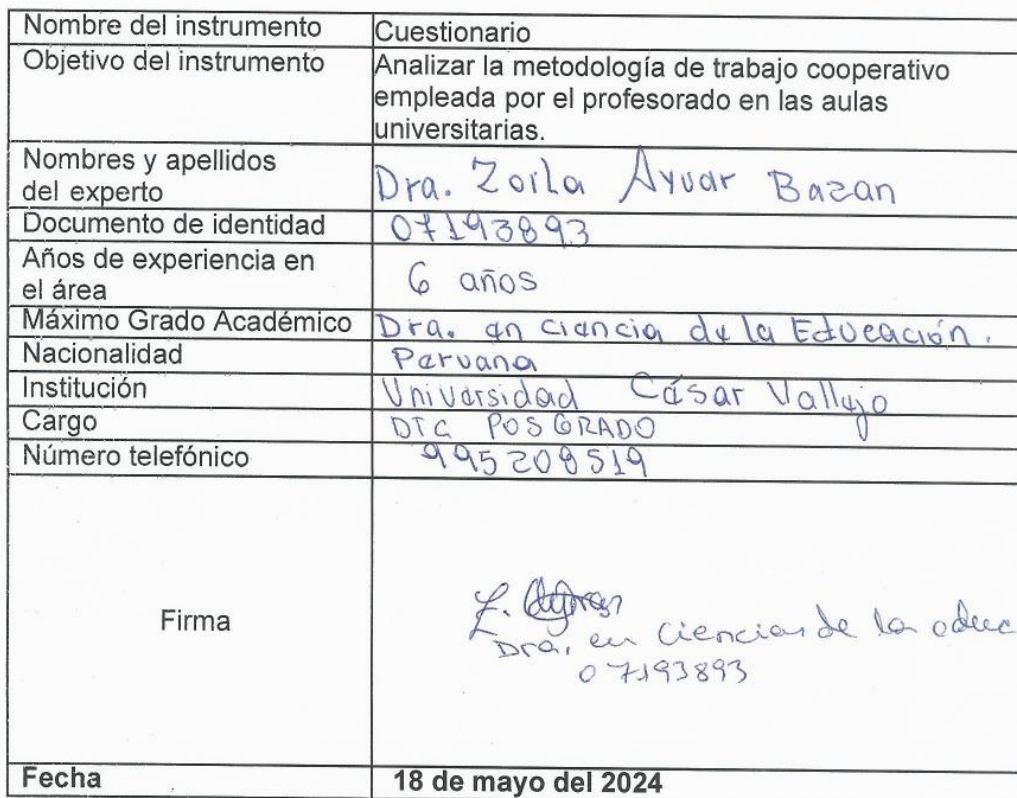 Nombre del instrumento Cuestionario
Objetivo del instrumento Analizar la metodología de trabajo cooperativo
empleada por el profesorado en las aulas
universitarias.
Nombres y apellidos
del experto Dra. Zoila Ayvar Bazan
Documento de identidad 07193893
Años de experiencia en
el área 6 años
Máximo Grado Académico Dra. en ciencia de la Educación.
Nacionalidad Peruana
Institución Universidad César Vallejo
Cargo DTC POSGRADO
Número telefónico 995208519
Firma
Dra. en Ciencias de la educ
07193893
Fecha 18 de mayo del 2024